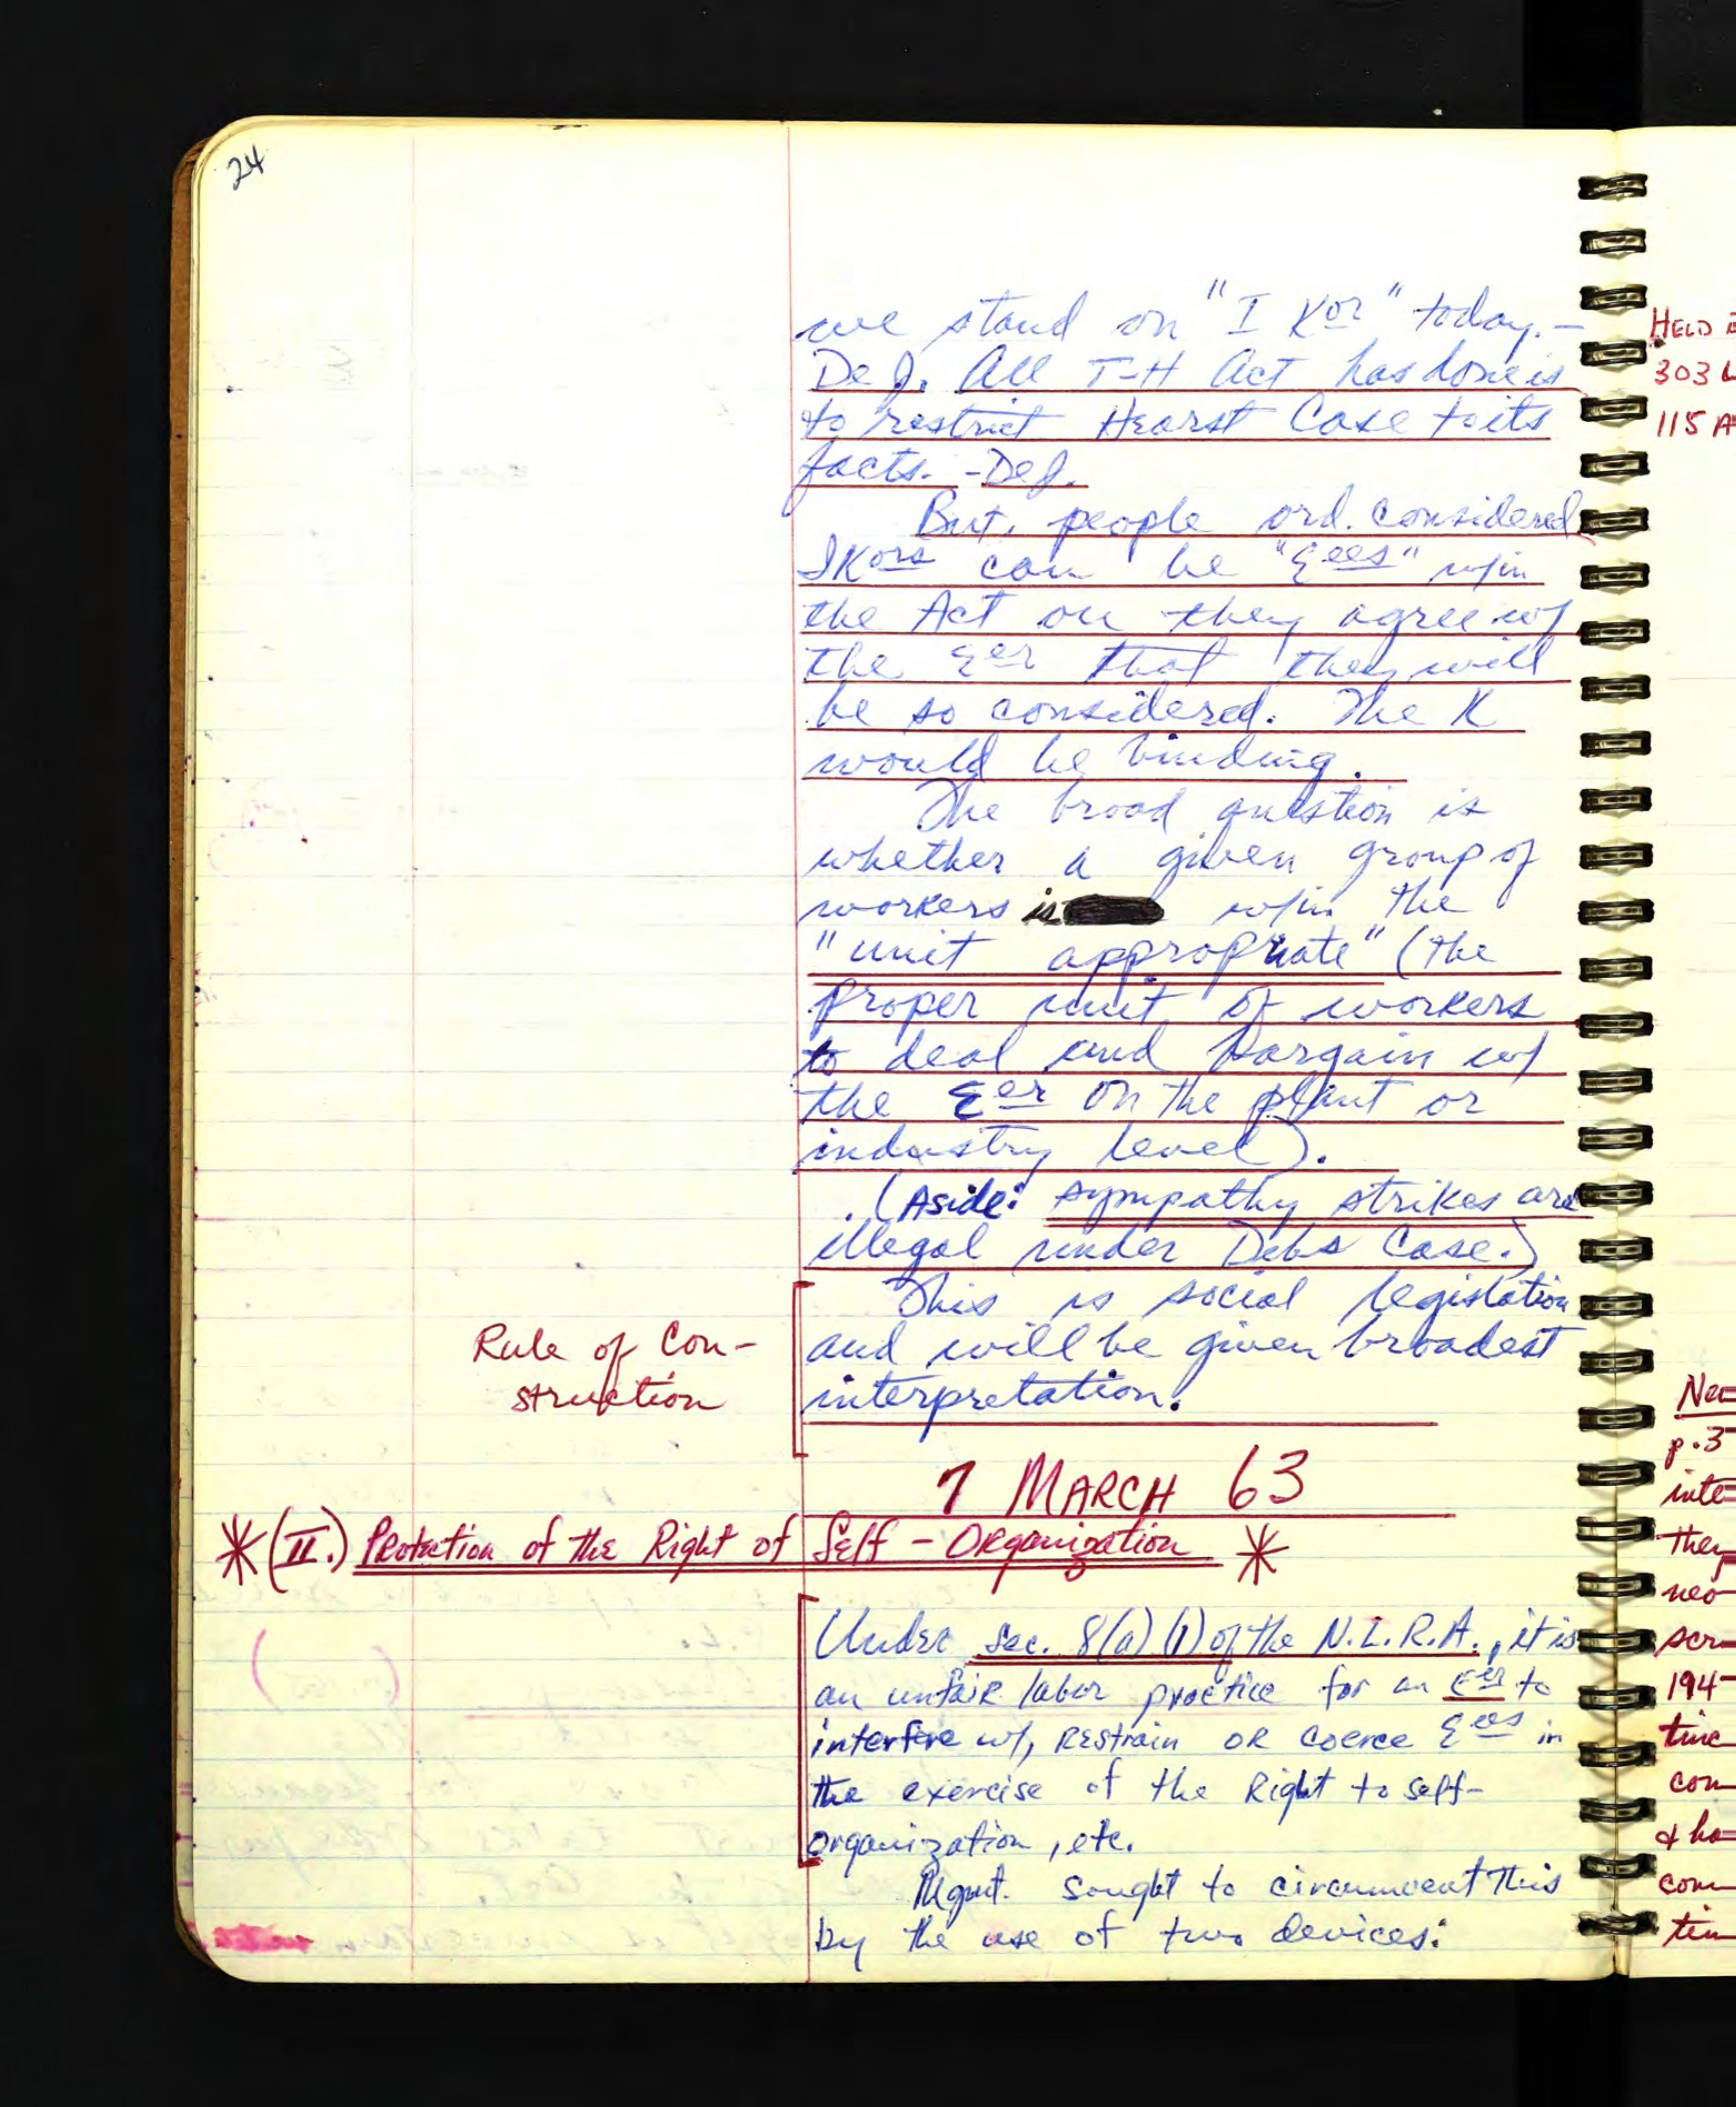 24
we stand on "I Kor" today. -
DeJ. All T-H Act has done is
to restrict Hearst Case to its
facts. - DeJ.
But, people ord. considered
IKors can be "Eees" w/in
the Act on they agree w/
the Eer that they will
be so considered. The K
would be binding.
The broad question is
whether a given group of
workers is w/in the
"unit appropriate" (the
proper unit of workers
to deal and bargain w/
the Eer on the plant or
industry level).
(Aside: sympathy strikes are
illegal under Debs Case.)
Rule of Con-
struction
This is social legislation
and will be given broadest
interpretation.
7 MARCH 63
*(II.) Protection of the Right of Self-Organization *
Under Sec. 8(a)(1) of the N.L.R.A., it is
an unfair labor practice for an Eer to
interfere w/, Restrain OR coerce Eees in
the exercise of the Right to self-
organization, etc.
Mgmt. sought to circumvent this
by the use of two devices:
HELD
303
115 A
p. 3
inte
then
neo
scr
194
tive
con
& ha
com
tin